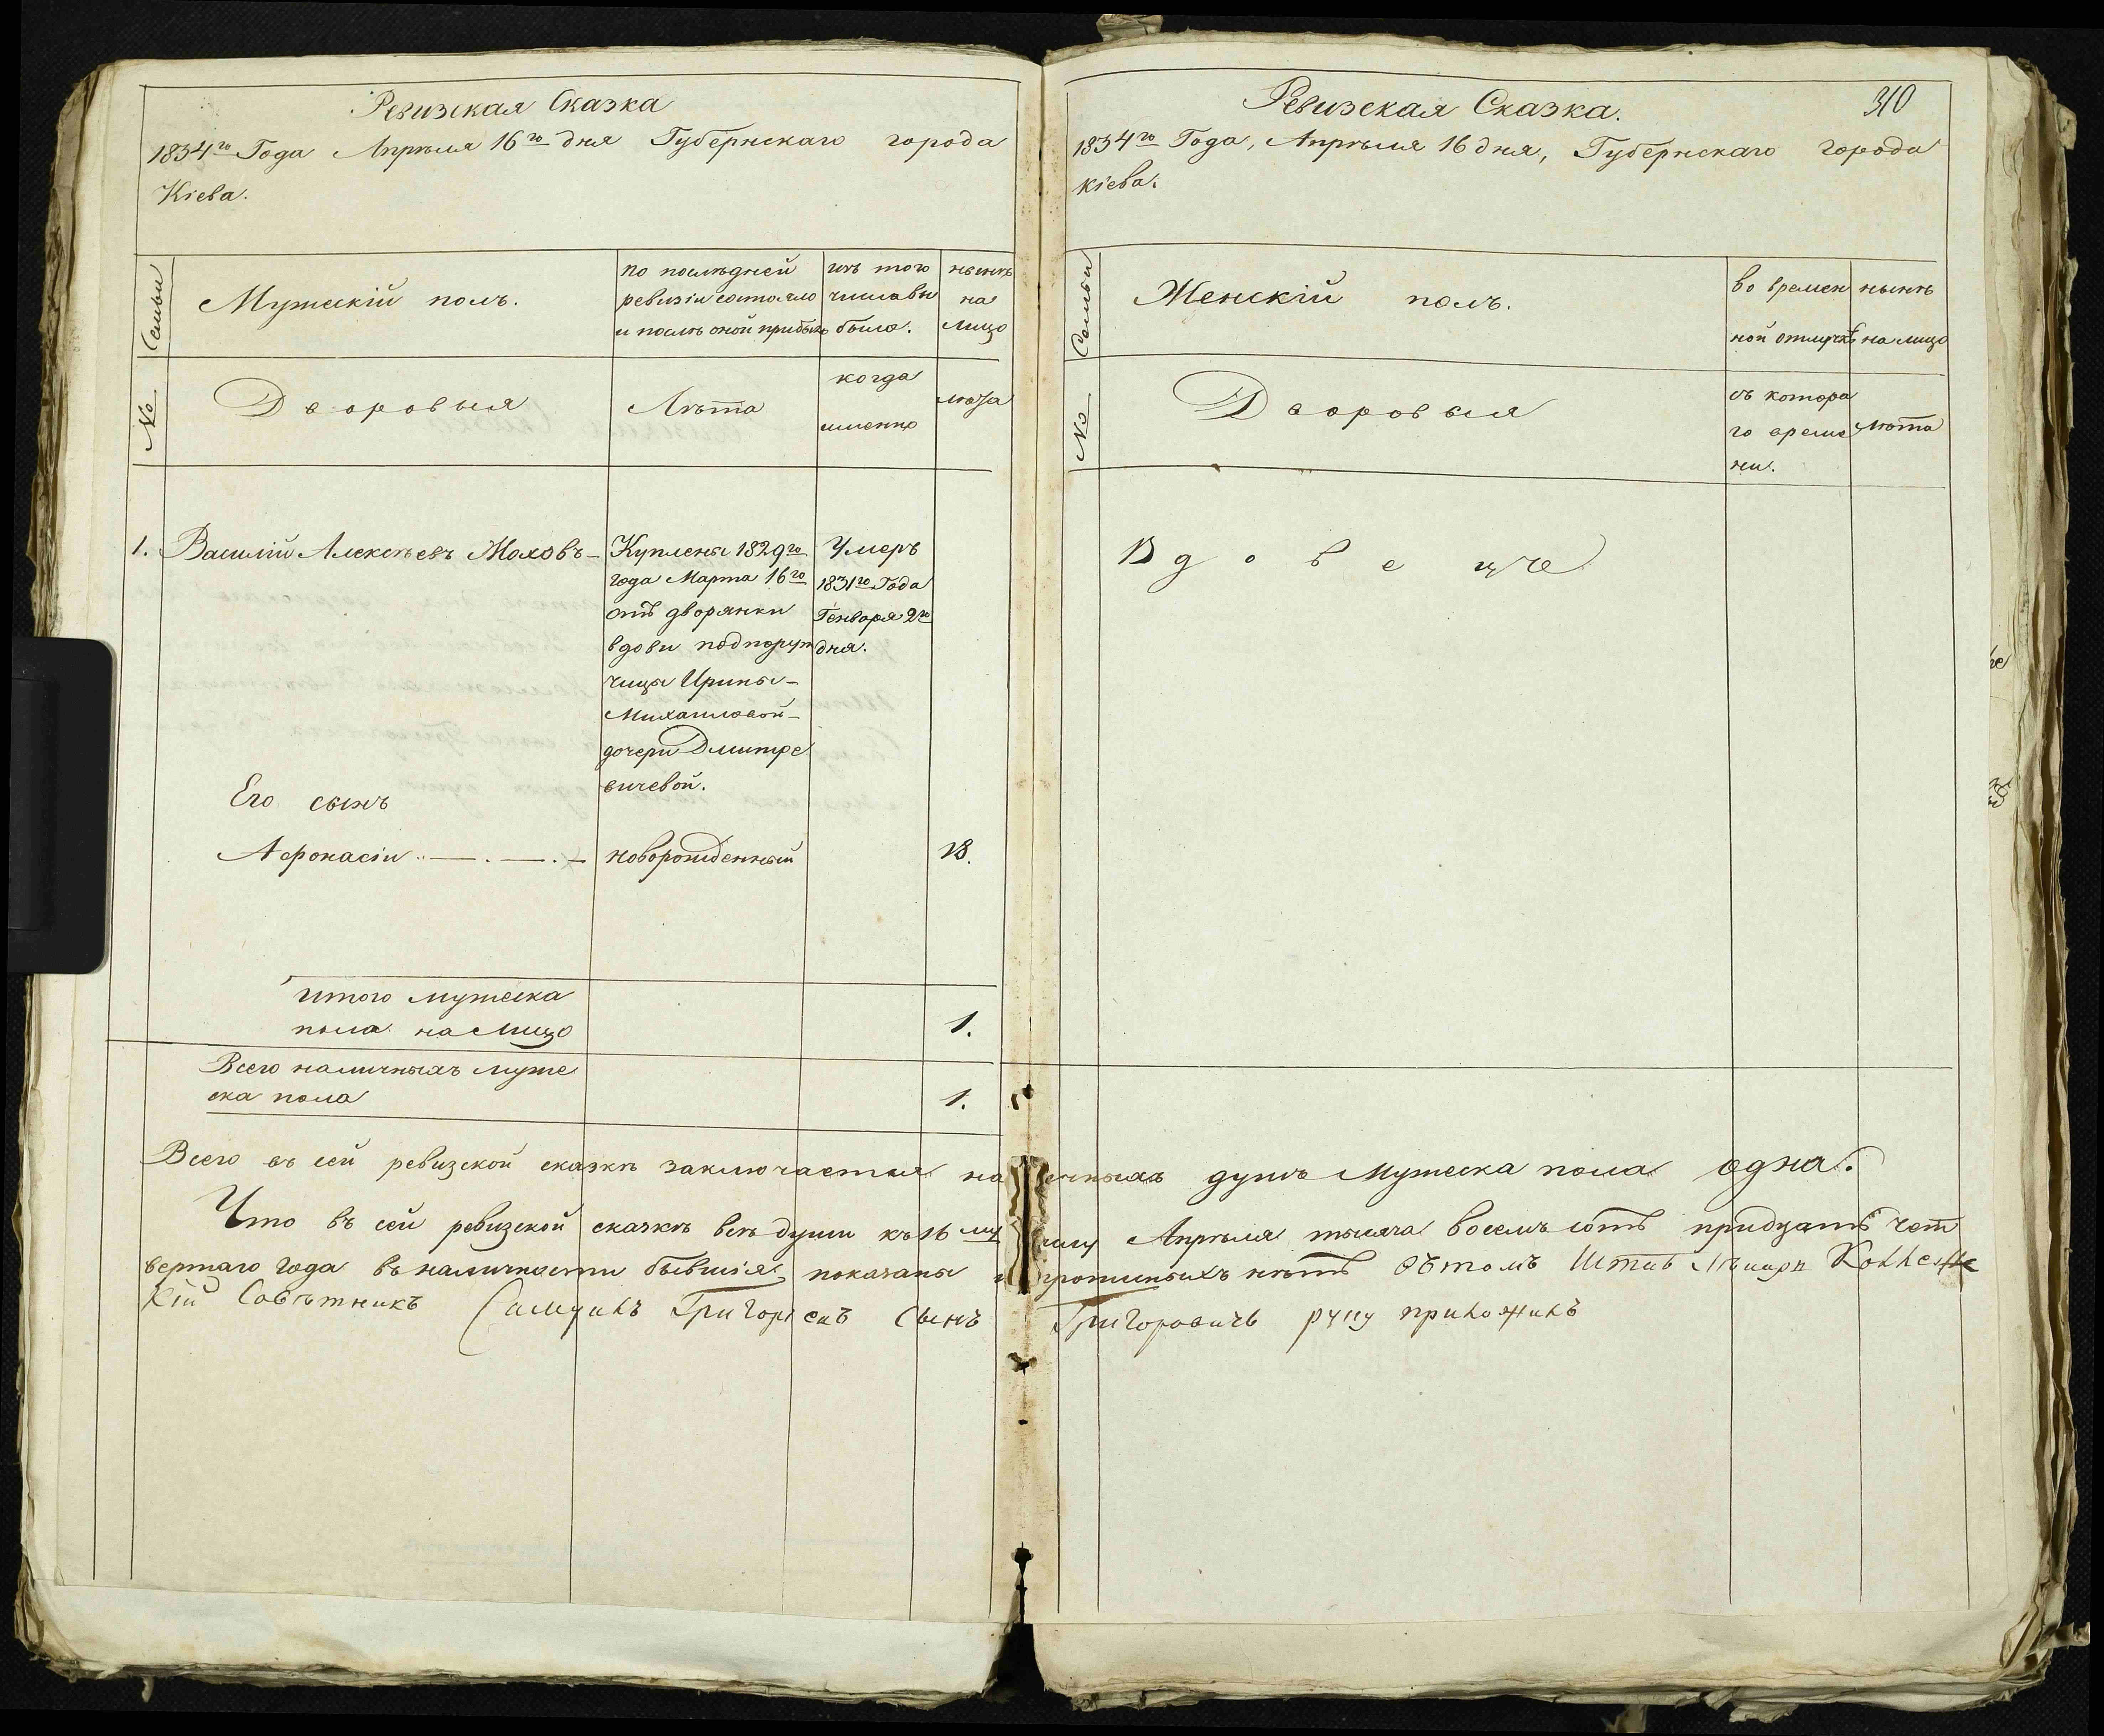 Ревизская Сказка
1834го Года Апрѣля 16го дня Губернскаго города
Кіева.
№ Семьи
Мужескій полъ.
по послѣдней
ревизіи состояло
и послѣ оной прибыло
изъ того
числа вы
было.
нынѣ
на
лицо
Дворовыя
Лѣта
когда
именно
лѣта
1. Василій Алексѣевъ Моховъ
Куплены 1829го
года Марта 16го
отъ дворянки
вдовы подпору
чицы Ирины
Михаиловой
дочери Дмитре
вичевой.
Умеръ
1831го Года
Генваря 2го
дня.
Его сынъ
Афонасіи
новорожденный
18.
Итого мужеска
пола на Лицо 1.
Всего наличныхъ муже
ска пола 1.
Ревизская Сказка. 310
1834го Года, Апрѣля 16 дня, Губернскаго города
Кіева.
№ Семьи
Женскій полъ.
во времен
ной отлучкѣ
нынѣ
на лицо
Дворовыя
съ котора
го време
ни.
Лѣта
Всего въ сей ревизской сказкѣ заключается наличныхъ душъ Мужеска пола одна.
Что въ сей ревизской сказкѣ всѣ души къ 16му числу Апрѣля тысяча восемъ сотъ тридцать чет
вертаго года въ наличности бывшія, показаны и прописныхъ нѣтъ въ томъ Коллежс
кій Совѣтникъ Григорьевъ Сынъ Григоровичъ руку приложилъ